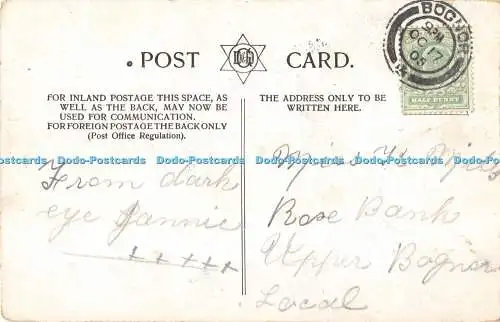 POST CARD.
BOGNOR
OC 7
05
HALF PENNY
FOR INLAND POSTAGE THIS SPACE, AS
WELL AS THE BACK, MAY NOW BE
USED FOR COMMUNICATION.
FOR FOREIGN POSTAGE THE BACK ONLY
(Post Office Regulation).
THE ADDRESS ONLY TO BE
WRITTEN HERE.
Dodo-Postcards Dodo-Postcards Dodo-Postcards Dodo-Postcards Dodo-Postcards
From dark
eye Jannie
+ + + + +
Miss H
Rose Bank
Upper Bognor
Local